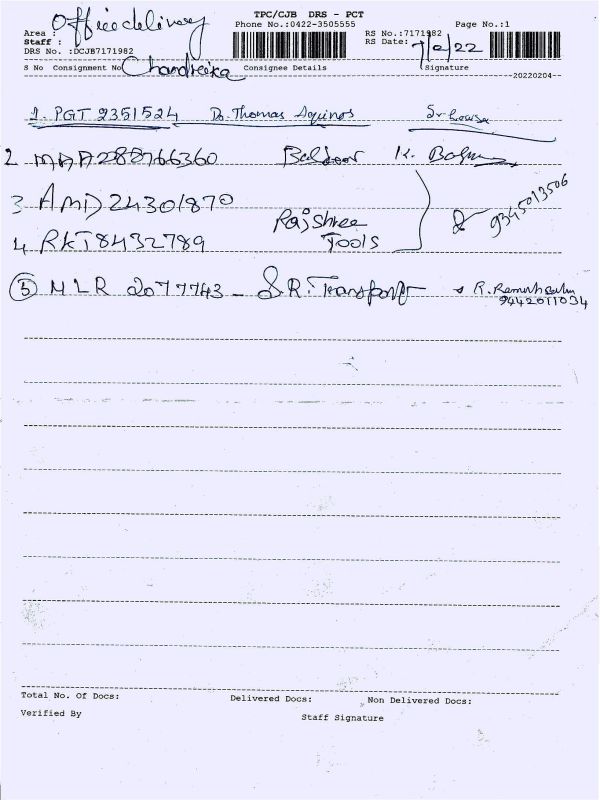 Office delivery
TPC/CJB DRS - PCT
Area :
Phone No.:0422-3505555
Page No.:1
Staff :
RS No.:7171982
DRS No. :DCJB7171982
RS Date: 7/2/22
S No Consignment No Chandreika Consignee Details Signature
20220204
1. PGT 2351524 Dr. Thomas Aquinos
2 MAA288766360 Baldoor K.
3 AMD24301870 Rajshree 9345013506
4. RKT8432789 Tools
5 MLR 2077743 - S.R. Transport R.
9442011034
Total No. Of Docs: Delivered Docs: Non Delivered Docs:
Verified By Staff Signature